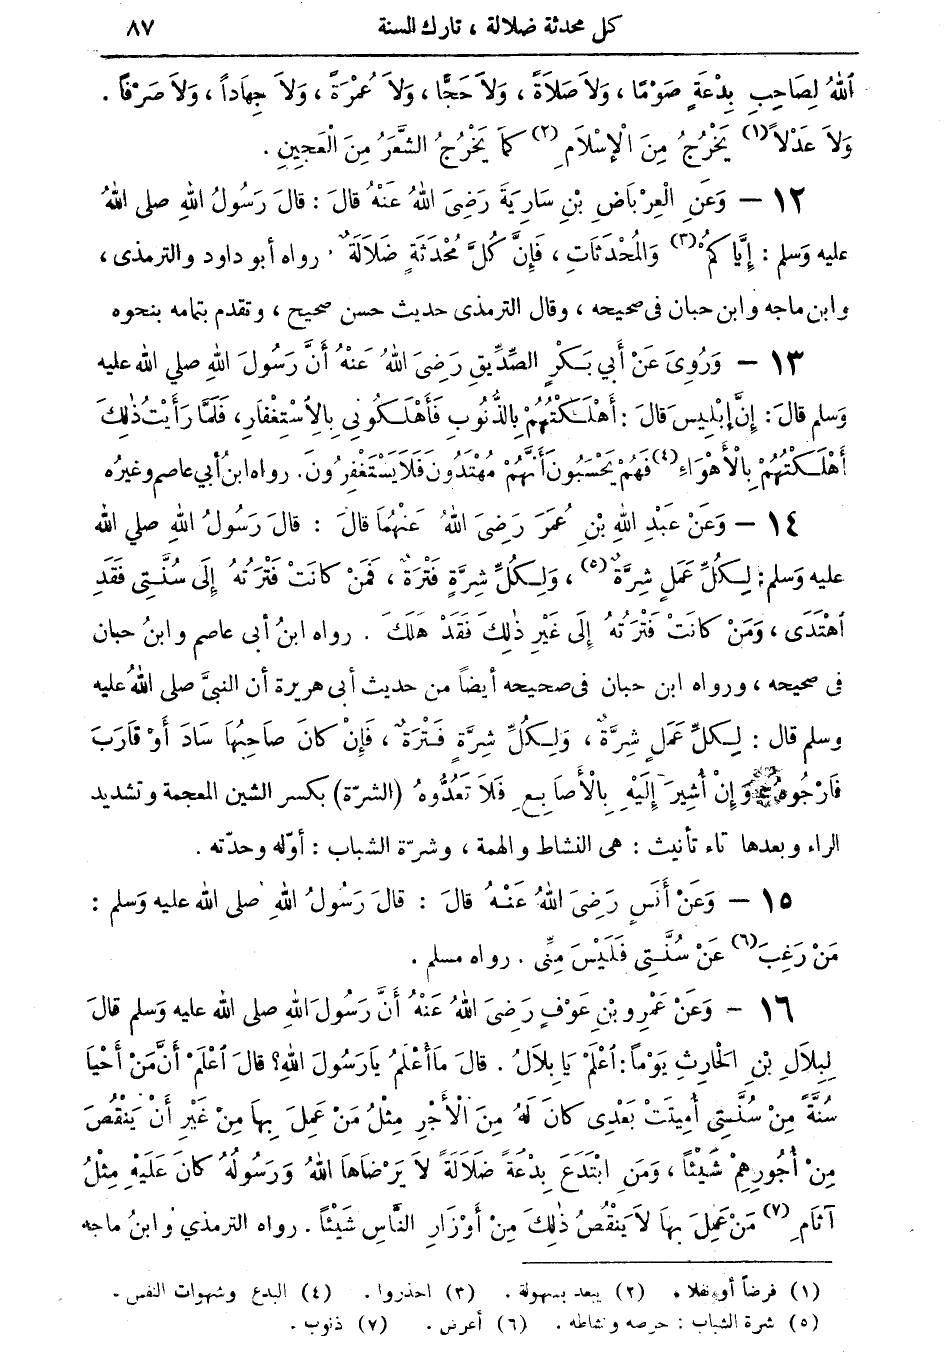 كل محدثة ضلالة ، تارك السنة ٨٧
ٱللهُ لِصَاحِبِ بِدْعَةٍ صَوْمًا ، وَلاَ صَلاَةً ، وَلاَ حَجًّا ، وَلاَ عُمْرَةً ، وَلاَ جِهَاداً ، وَلاَ صَرْفًا .
وَلاَ عَدْلاً (١) يَخْرُجُ مِنَ الْإِسْلَامِ (٢) كَمَا يَخْرُجُ الشَّعَرُ مِنَ الْعَجِينِ .
١٢ – وَعَنِ الْعِرْبَاضِ بْنِ سَارِيَةَ رَضِىَ اللهُ عَنْهُ قالَ : قالَ رَسُولُ اللهِ صلى اللهُ
عليه وَسلم : إِيَّاكُمْ (٣) وَالْمُحْدَثَاتِ ، فَإِنَّ كُلَّ مُحْدَثَةٍ ضَلَالَةٌ . رواه أبو داود والترمذى ،
وابن ماجه وابن حبان فى صحيحه ، وقال الترمذى حديث حسن صحيح ، وتقدم بتمامه بنحوه
١٣ – وَرُوِىَ عَنْ أَبِي بَكْرٍ الصِّدِّيقِ رَضِىَ اللهُ عَنْهُ أَنَّ رَسُولَ اللهِ صلي الله عليه
وَسلم قالَ : إِنَّ إِبْلِيسَ قالَ : أَهْلَكْتُهُمْ بِالذُّنُوبِ فَأَهْلَكُونِي بِالِاسْتِغْفَارِ ، فَلَمَّا رَأَيْتُ ذٰلِكَ
أَهْلَكْتُهُمْ بِالْأَهْوَاءِ (٤) فَهُمْ يَحْسَبُونَ أَنَّهُمْ مُهْتَدُونَ فَلَا يَسْتَغْفِرُونَ . رواه ابنُ أبي عاصم وغيرُه
١٤ – وَعَنْ عَبْدِ اللهِ بْنِ عُمَرَ رَضِىَ اللهُ عَنْهُمَا قالَ : قالَ رَسُولُ اللهِ صلي الله
عليه وَسلم : لِكُلِّ عَمَلٍ شِرَّةٌ (٥) ، وَلِكُلِّ شِرَّةٍ فَتْرَةٌ ، فَمَنْ كَانَتْ فَتْرَتُهُ إِلَى سُنَّتِى فَقَدِ
ٱهْتَدَى ، وَمَنْ كَانَتْ فَتْرَتُهُ إِلَى غَيْرِ ذٰلِكَ فَقَدْ هَلَكَ . رواه ابنُ أبى عاصم وابنُ حبان
فى صحيحه ، ورواه ابن حبان فى صحيحه أيضاً من حديث أبى هريرة أن النبىَّ صلى اللهُ عليه
وسلم قال : لِكُلِّ عَمَلٍ شِرَّةٌ ، وَلِكُلِّ شِرَّةٍ فَتْرَةٌ ، فَإِنْ كَانَ صَاحِبُهَا سَادَ أَوْ قَارَبَ
فَارْجُوهُ وَإِنْ أُشِيرَ إِلَيْهِ بِالْأَصَابِعِ فَلَا تَعُدُّوهُ (الشرّة) بكسر الشين المعجمة وتشديد
الراء وبعدها تاء تأنيث : هى النشاط والهمة ، وشرّة الشباب : أوّله وحدّته .
١٥ – وَعَنْ أَنَسٍ رَضِىَ اللهُ عَنْهُ قالَ : قالَ رَسُولُ اللهِ صلى الله عليه وَسلم :
مَنْ رَغِبَ (٦) عَنْ سُنَّتِى فَلَيْسَ مِنِّى . رواه مسلم .
١٦ – وَعَنْ عَمْرِو بْنِ عَوْفٍ رَضِىَ اللهُ عَنْهُ أَنَّ رَسُولَ اللهِ صلى الله عليه وَسلم قالَ
لِبِلَالِ بْنِ الْحَارِثِ يَوْماً : أعْلَمْ يَا بِلَالُ . قالَ مَا أَعْلَمُ يَارَسُولَ اللهِ ؟ قالَ أعْلَمْ أَنَّ مَنْ أَحْيَا
سُنَّةً مِنْ سُنَّتِى أُمِيتَتْ بَعْدِى كَانَ لَهُ مِنَ الْأَجْرِ مِثْلُ مَنْ عَمِلَ بِهَا مِنْ غَيْرِ أَنْ يَنْقُصَ
مِنْ أُجُورِهِمْ شَيْئًا ، وَمَنِ ابْتَدَعَ بِدْعَةً ضَلَالَةً لَا يَرْضَاهَا اللهُ وَرَسُولُهُ كَانَ عَلَيْهِ مِثْلُ
آثَامِ (٧) مَنْ عَمِلَ بِهَا لَا يَنْقُصُ ذٰلِكَ مِنْ أَوْزَارِ النَّاسِ شَيْئًا . رواه الترمذي وابنُ ماجه
(١) فرضاً أو نفلا . (٢) يبعد بسهولة . (٣) احذروا . (٤) البدع وشهوات النفس .
(٥) شرة الشباب : حرصه ونشاطه . (٦) أعرض . (٧) ذنوب .